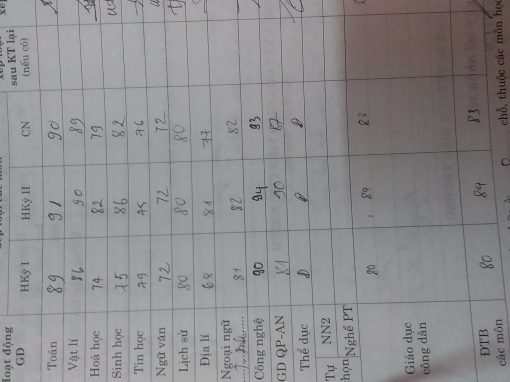 Hoạt động GD HKỳ I HKỳ II CN sau KT lại (nếu có)
Toán 89 91 90
Vật lí 86 90 89
Hoá học 74 82 79
Sinh học 75 86 82
Tin học 79 75 76
Ngữ văn 72 72 72
Lịch sử 80 80 80
Địa lí 68 81 77
Ngoại ngữ 81 82 82
Công nghệ 90 94 93
GD QP-AN 81 90 87
Thể dục Đ Đ Đ
Tự họn NN2
Nghề PT
Giáo dục công dân 80 84 83
ĐTB các môn 80 84 83
chỗ, thuộc các môn học